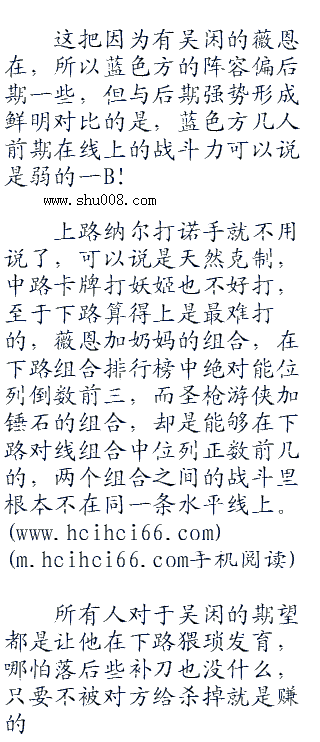 这把因为有吴闲的薇恩
在，所以蓝色方的阵容偏后
期一些，但与后期强势形成
鲜明对比的是，蓝色方几人
前期在线上的战斗力可以说
是弱的一B！
www.shu008.com
上路纳尔打诺手就不用
说了，可以说是天然克制，
中路卡牌打妖姬也不好打，
至于下路算得上是最难打
的，薇恩加奶妈的组合，在
下路组合排行榜中绝对能位
列倒数前三，而圣枪游侠加
锤石的组合，却是能够在下
路对线组合中位列正数前几
的，两个组合之间的战斗里
根本不在同一条水平线上。
(www.hcihci66.com)
(m.hcihci66.com手机阅读)
所有人对于吴闲的期望
都是让他在下路猥琐发育，
哪怕落后些补刀也没什么，
只要不被对方给杀掉就是赚
的